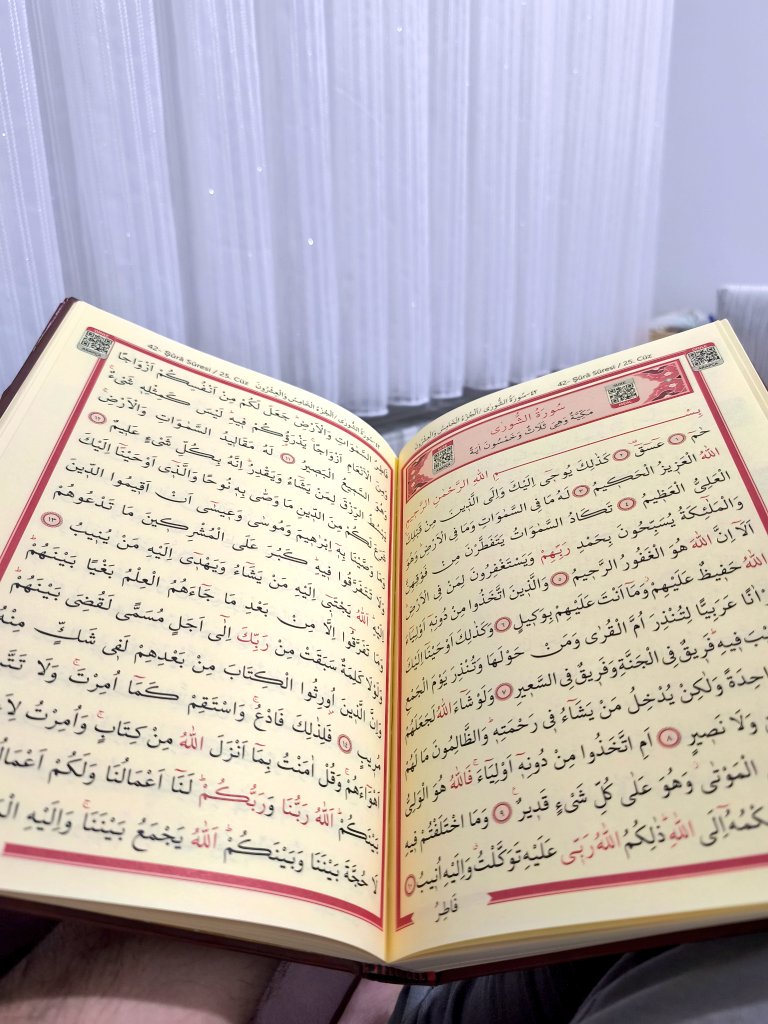 42- Şûrâ Sûresi / 25. Cüz
٤٢-سُورَةُ الشُّورٰى / اَلْجُزْءُ الْخَامِسُ وَالْعِشْرُونَ
سُورَةُ الشُّورٰى
مَكِّيَّةٌ وَهِيَ ثَلَاثٌ وَخَمْسُونَ اٰيَةً
بِسْمِ اللّٰهِ الرَّحْمٰنِ الرَّحِيمِ
حٰمٓ ۝١ عٓسٓقٓ ۝٢ كَذٰلِكَ يُوحٰٓى اِلَيْكَ وَاِلَى الَّذِينَ مِنْ قَبْلِكَ
اللّٰهُ الْعَزِيزُ الْحَكِيمُ ۝٣ لَهُ مَا فِى السَّمٰوَاتِ وَمَا فِى الْاَرْضِ وَهُوَ
الْعَلِىُّ الْعَظِيمُ ۝٤ تَكَادُ السَّمٰوَاتُ يَتَفَطَّرْنَ مِنْ فَوْقِهِنَّ
وَالْمَلٰٓئِكَةُ يُسَبِّحُونَ بِحَمْدِ رَبِّهِمْ وَيَسْتَغْفِرُونَ لِمَنْ فِى الْاَرْضِ
اَلَٓا اِنَّ اللّٰهَ هُوَ الْغَفُورُ الرَّحِيمُ ۝٥ وَالَّذِينَ اتَّخَذُوا مِنْ دُونِهٓ اَوْلِيَٓاءَ
اللّٰهُ حَفِيظٌ عَلَيْهِمْ وَمَٓا اَنْتَ عَلَيْهِمْ بِوَكِيلٍ ۝٦ وَكَذٰلِكَ اَوْحَيْنَٓا اِلَيْكَ
عَرَبِيًّا لِتُنْذِرَ اُمَّ الْقُرٰى وَمَنْ حَوْلَهَا وَتُنْذِرَ يَوْمَ الْجَمْعِ
فِيهِ فَرِيقٌ فِى الْجَنَّةِ وَفَرِيقٌ فِى السَّعِيرِ ۝٧ وَلَوْ شَٓاءَ اللّٰهُ لَجَعَلَهُمْ
وَاحِدَةً وَلٰكِنْ يُدْخِلُ مَنْ يَشَٓاءُ فِى رَحْمَتِهٖ وَالظَّالِمُونَ مَا لَهُمْ
وَلَا نَصِيرٍ ۝٨ اَمِ اتَّخَذُوا مِنْ دُونِهٓ اَوْلِيَٓاءَ فَاللّٰهُ هُوَ الْوَلِىُّ
الْمَوْتٰى وَهُوَ عَلٰى كُلِّ شَىْءٍ قَدِيرٌ ۝٩ وَمَا اخْتَلَفْتُمْ فِيهِ
اِلَى اللّٰهِ ذٰلِكُمُ اللّٰهُ رَبِّى عَلَيْهِ تَوَكَّلْتُ وَاِلَيْهِ اُنِيبُ ۝١٠
فَاطِرُ
42- Şûrâ Sûresi / 25. Cüz
سُورَةُ الشُّورٰى / اَلْجُزْءُ الْخَامِسُ وَالْعِشْرُونَ
فَاطِرُ السَّمٰوَاتِ وَالْاَرْضِ جَعَلَ لَكُمْ مِنْ اَنْفُسِكُمْ اَزْوَاجًا
وَمِنَ الْاَنْعَامِ اَزْوَاجًا يَذْرَؤُكُمْ فِيهِ لَيْسَ كَمِثْلِهٖ شَىْءٌ
وَهُوَ السَّمِيعُ الْبَصِيرُ ۝١١ لَهُ مَقَالِيدُ السَّمٰوَاتِ وَالْاَرْضِ
يَبْسُطُ الرِّزْقَ لِمَنْ يَشَٓاءُ وَيَقْدِرُ اِنَّهُ بِكُلِّ شَىْءٍ عَلِيمٌ ۝١٢
شَرَعَ لَكُمْ مِنَ الدِّينِ مَا وَصّٰى بِهٖ نُوحًا وَالَّذٓى اَوْحَيْنَٓا اِلَيْكَ
وَمَا وَصَّيْنَا بِهٓ اِبْرٰهِيمَ وَمُوسٰى وَعِيسٰٓى اَنْ اَقِيمُوا الدِّينَ
وَلَا تَتَفَرَّقُوا فِيهِ كَبُرَ عَلَى الْمُشْرِكِينَ مَا تَدْعُوهُمْ
اِلَيْهِ اَللّٰهُ يَجْتَبٓى اِلَيْهِ مَنْ يَشَٓاءُ وَيَهْدٓى اِلَيْهِ مَنْ يُنِيبُ ۝١٣
وَمَا تَفَرَّقُٓوا اِلَّا مِنْ بَعْدِ مَا جَٓاءَهُمُ الْعِلْمُ بَغْيًا بَيْنَهُمْ
وَلَوْلَا كَلِمَةٌ سَبَقَتْ مِنْ رَبِّكَ اِلٰٓى اَجَلٍ مُسَمًّى لَقُضِىَ بَيْنَهُمْ
وَاِنَّ الَّذِينَ اُورِثُوا الْكِتَابَ مِنْ بَعْدِهِمْ لَفِى شَكٍّ مِنْهُ
مُرِيبٍ ۝١٤ فَلِذٰلِكَ فَادْعُ وَاسْتَقِمْ كَمَٓا اُمِرْتَ وَلَا
اَهْوَٓاءَهُمْ وَقُلْ اٰمَنْتُ بِمَٓا اَنْزَلَ اللّٰهُ مِنْ كِتَابٍ وَاُمِرْتُ
بَيْنَكُمْ اَللّٰهُ رَبُّنَا وَرَبُّكُمْ لَنَٓا اَعْمَالُنَا وَلَكُمْ
لَا حُجَّةَ بَيْنَنَا وَبَيْنَكُمْ اَللّٰهُ يَجْمَعُ بَيْنَنَا وَاِلَيْهِ